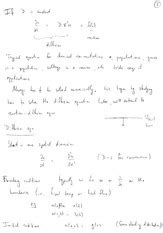 1
If D = constant
∂u/∂t = D ∇²u + f(u)
diffusion
Typical equation for chemical concentrations, populations, genes
in a population, voltage in a neuron, etc. wide range of
applications.
Always has to be solved numerically. Let's begin by studying
how to solve the diffusion equation. Later, will extend to
reaction-diffusion eqn.
Diffusion eqn
Start in one spatial dimension
∂u/∂t = ∂²u/∂x² (D = 1 for convenience)
Boundary conditions typically on u or ∂u/∂x at the
boundaries (i.e. fixed temp or heat flux)
eg u(0,t) =
u(1,t) =
Initial conditions u(x,0) = g(x)